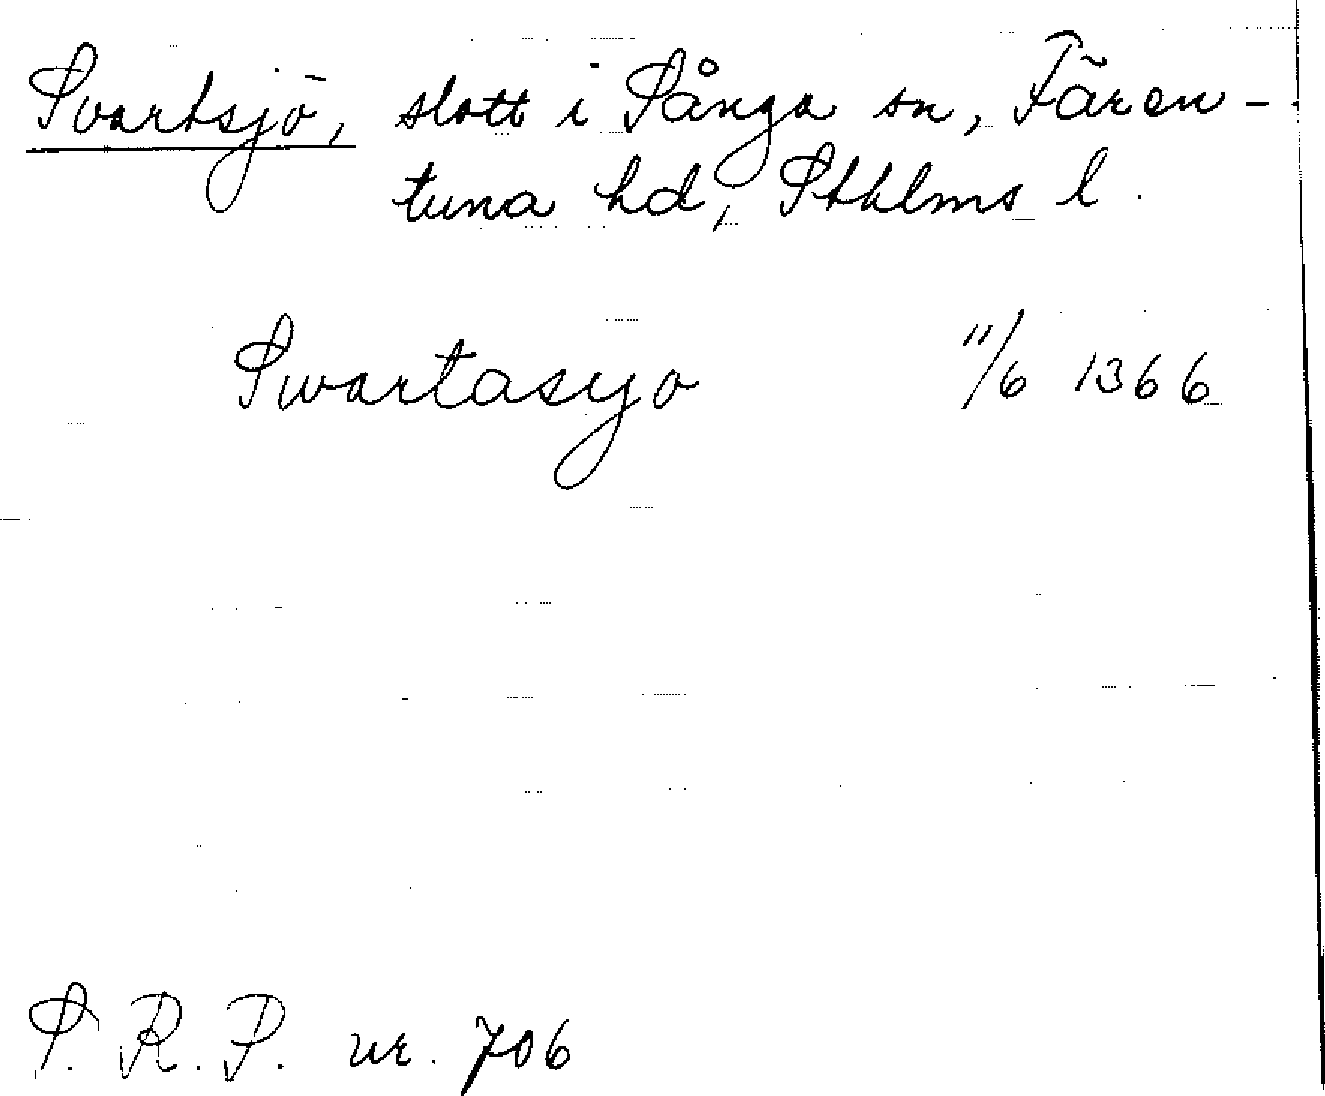 Svartsjö, slott i Sånga sn, Fären-
tuna hd, Sthlms l.
Swartasyo 11/6 1366
S. R. P. nr. 706